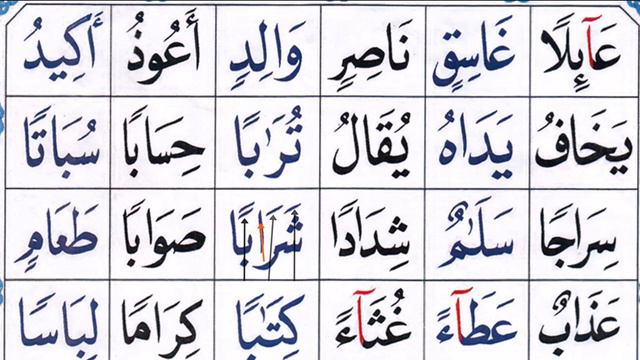 عَآىِٕلًا غَاسِقٍ نَاصِرٍ وَالِدٍ أَعُوذُ أَكِيدُ
يَخَافُ يَدَاهُ يُقَالُ تُرَٰبًا حِسَابًا سُبَاتًا
سِرَاجًا سَلَٰمٌ شِدَادًا شَرَابًا صَوَابًا طَعَامٍ
عَذَابٌ عَطَآءً غُثَآءً كِتَٰبًا كِرَامًا لِبَاسًا